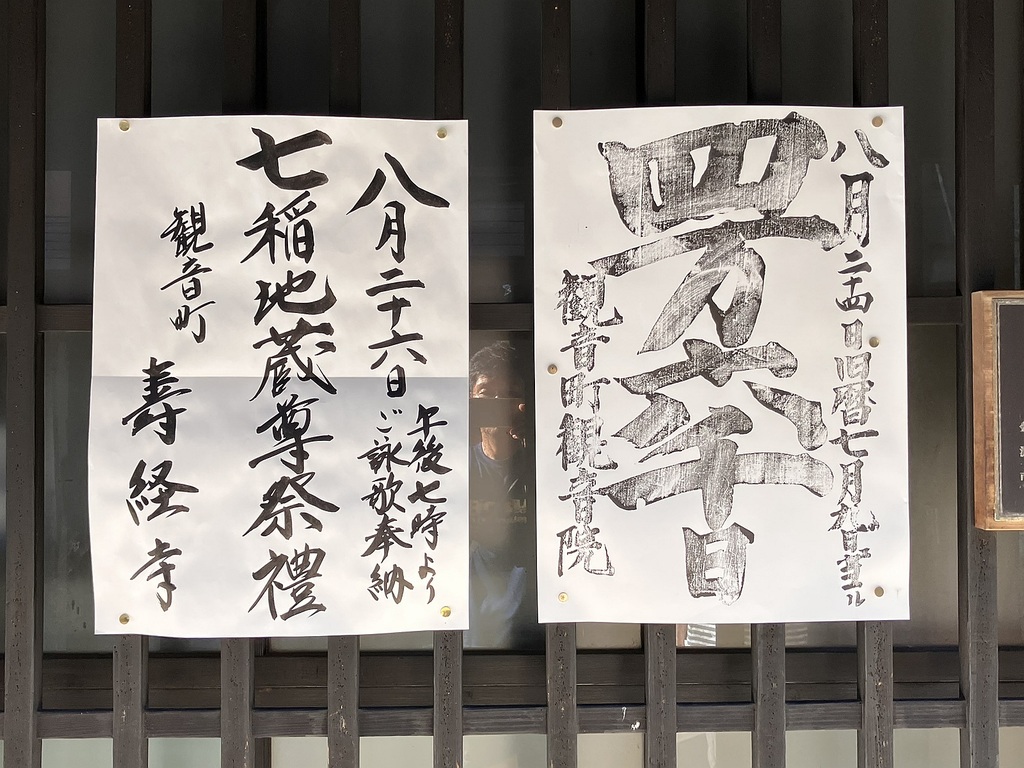 八月二十四日旧暦七月九日
四万六千日
観音町観音院
八月二十六日
午後七時より
ご詠歌奉納
七稲地蔵尊祭禮
観音町
寿経寺